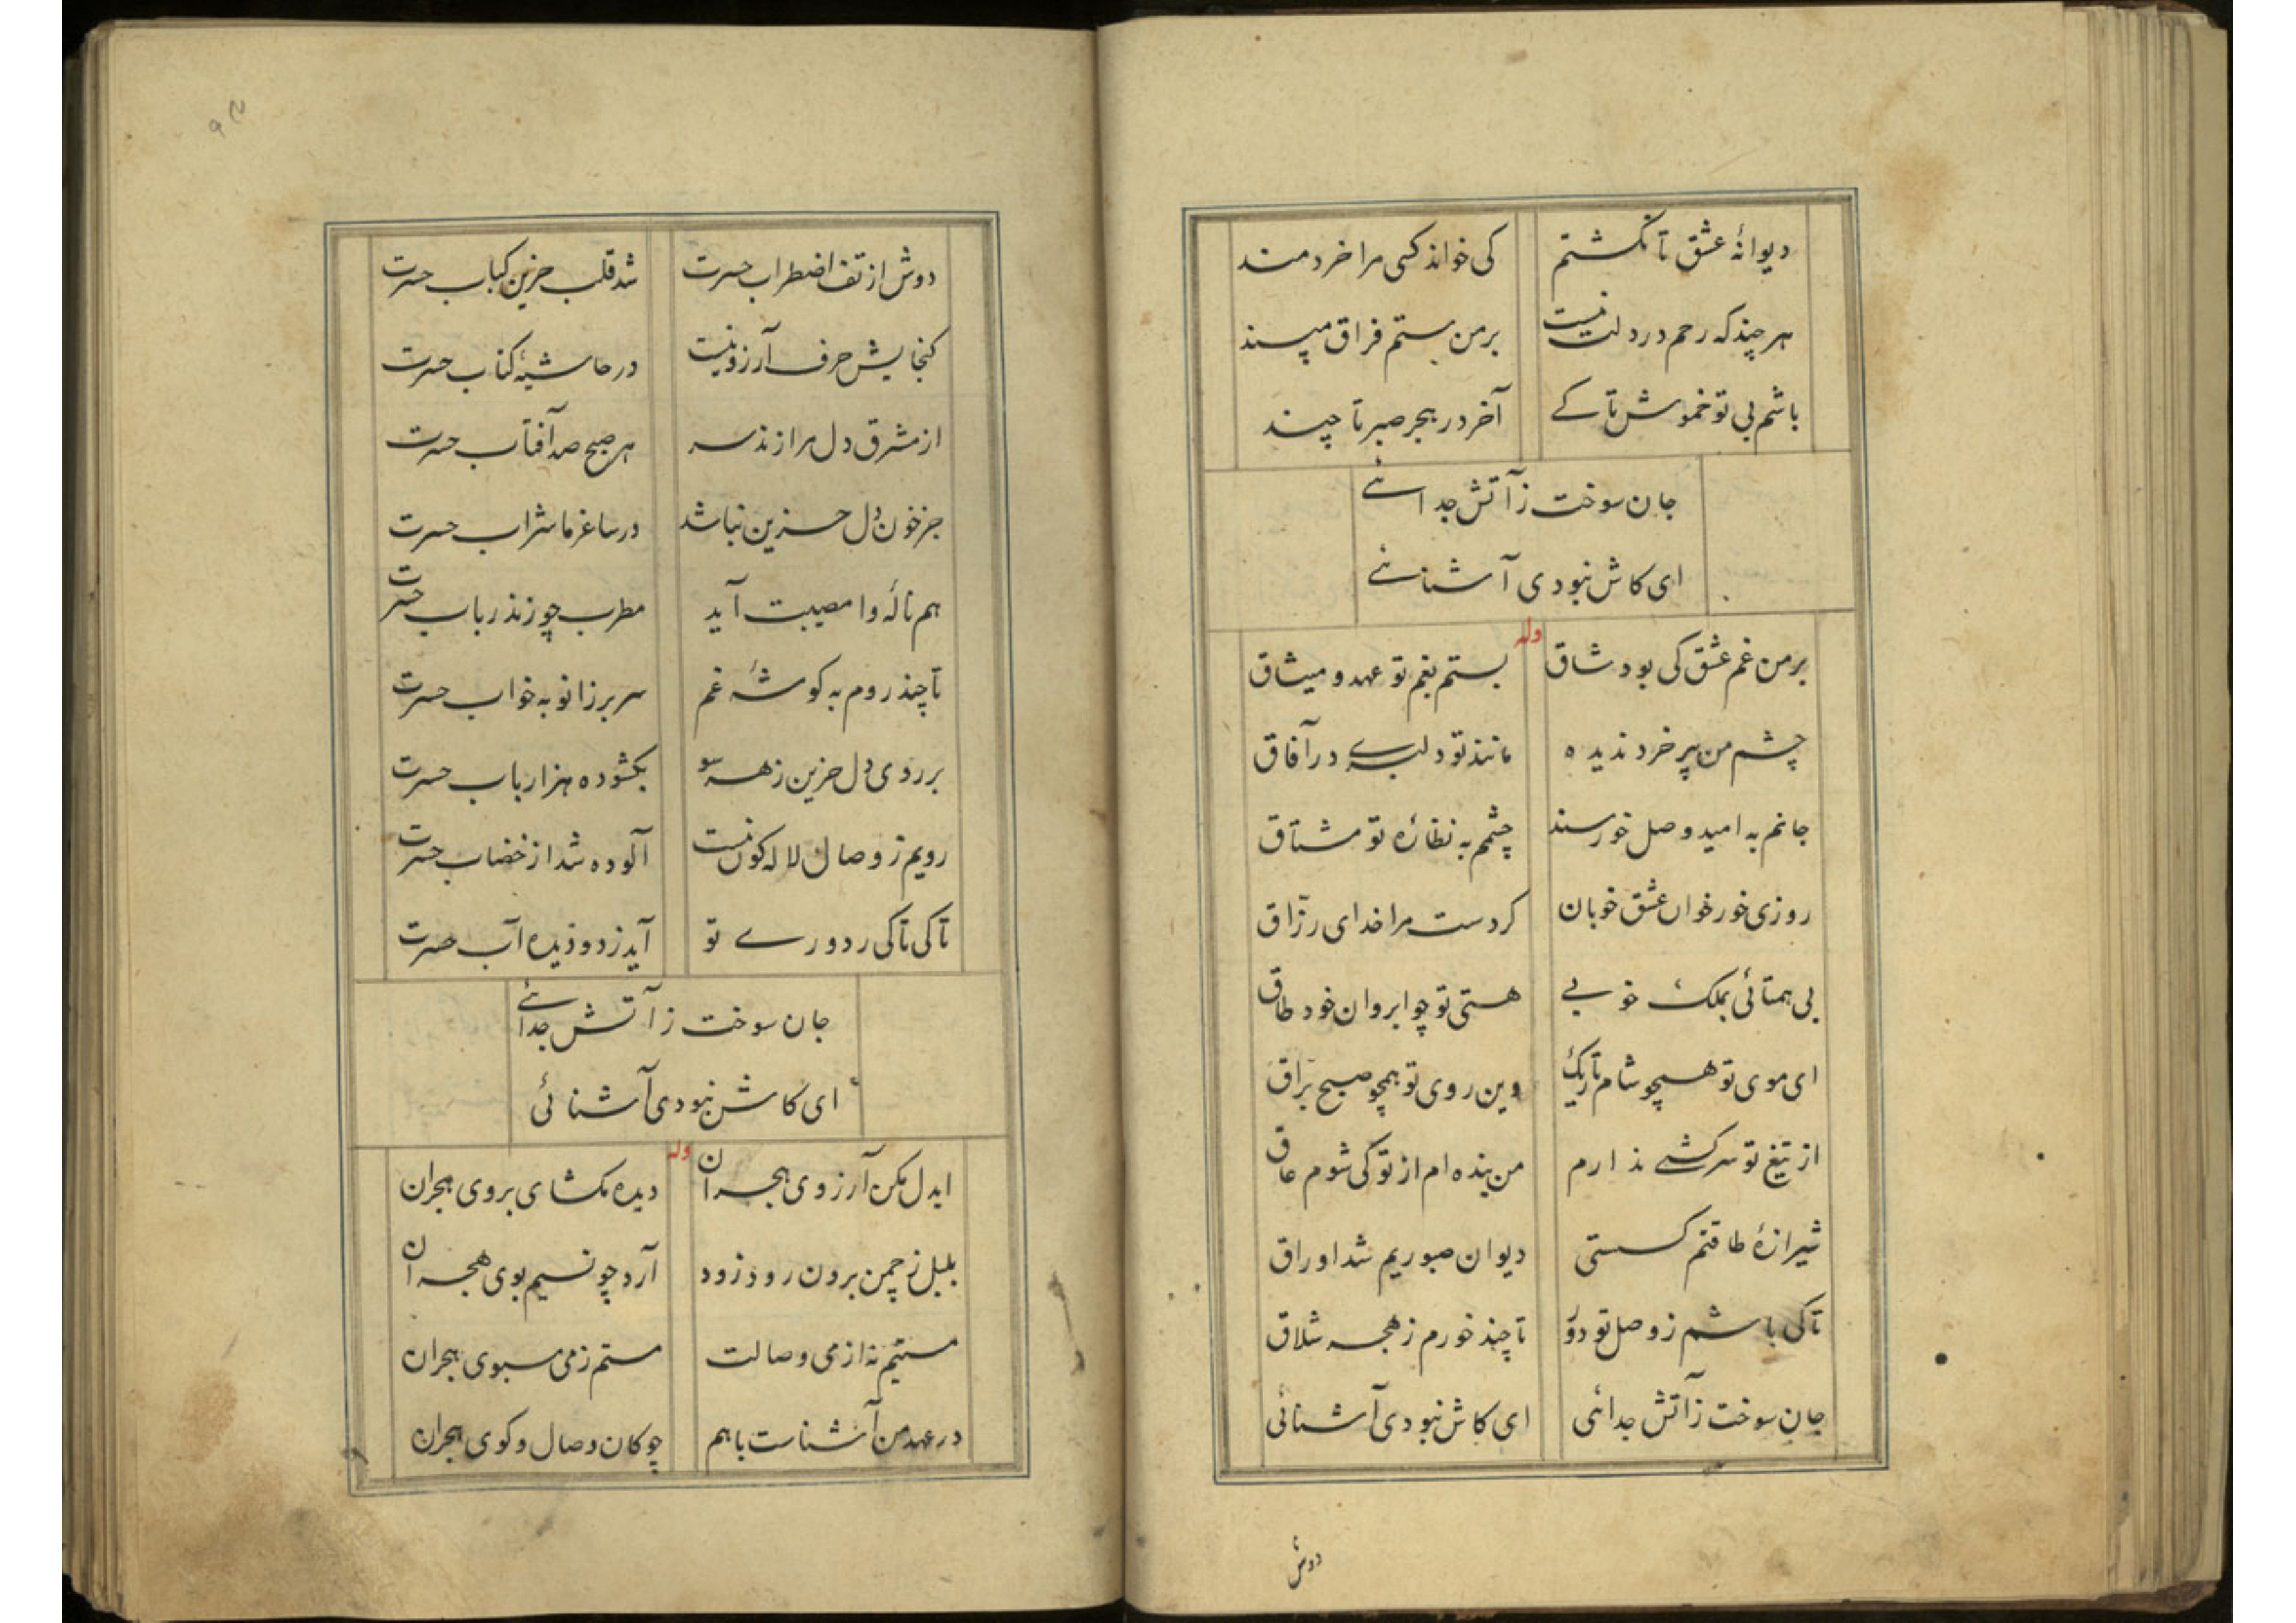 دیوانهٔ عشق تا نگشتم کی خواند کسی مرا خردمند
هر چند که رحم در دلت نیست بر من ستم فراق مپسند
باشم بی تو خموش تا کے آخر در هجر صبر تا چند
جان سوخت ز آتش جدائے
ای کاش نبودی آشنائے
وله
بر من غم عشق کی بود شاق بستم بغم تو عهد و میثاق
چشم من پیر خرد ندیده مانند تو دلبرے در آفاق
جانم به امید وصل خورسند چشمم به نظارهٔ تو مشتاق
روزی خور خوان عشق خوبان کردست مرا خدای رزّاق
بی همتائی بملک خوبے هستی تو چو ابروان خود طاق
ای موی تو همچو شام تاریک وین روی تو همچو صبح برّاق
از تیغ تو سرکشے ندارم من بنده ام از تو کی شوم عاق
شیرازهٔ طاقتم گسستی دیوان صبوریم شد اوراق
تا کی باشم ز وصل تو دور تا چند خورم ز هجر شلاق
جان سوخت ز آتش جدائی ای کاش نبودی آشنائی
دوش
دوش از تف اضطراب حسرت شد قلب حزین کباب حسرت
کنجایش حرف آرزو نیست در حاشیهٔ کتاب حسرت
از مشرق دل مرا زند سر هر صبح صد آفتاب حسرت
جز خون دل حزین نباشد در ساغر ما شراب حسرت
هم نالهٔ وا مصیبت آید مطرب چو زند رباب حسرت
تا چند روم به کوشهٔ غم سر بر زانو به خواب حسرت
بر روی دل حزین ز هر سو بکشوده هزار باب حسرت
رویم ز وصال لاله کون نیست آلوده شد از خضاب حسرت
تا کی تا کی ز دورے تو آید ز دو دیده آب حسرت
جان سوخت ز آتش جدائے
ای کاش نبودی آشنائی
وله
ایدل مکن آرزوی هجران دیده مکشای بروی هجران
بلبل ز چمن برون رود زود آرد چو نسیم بوی هجران
مستیم نه از می وصالت مستم ز می سبوی هجران
در عهد من آشناست با هم چوکان وصال و کوی هجران